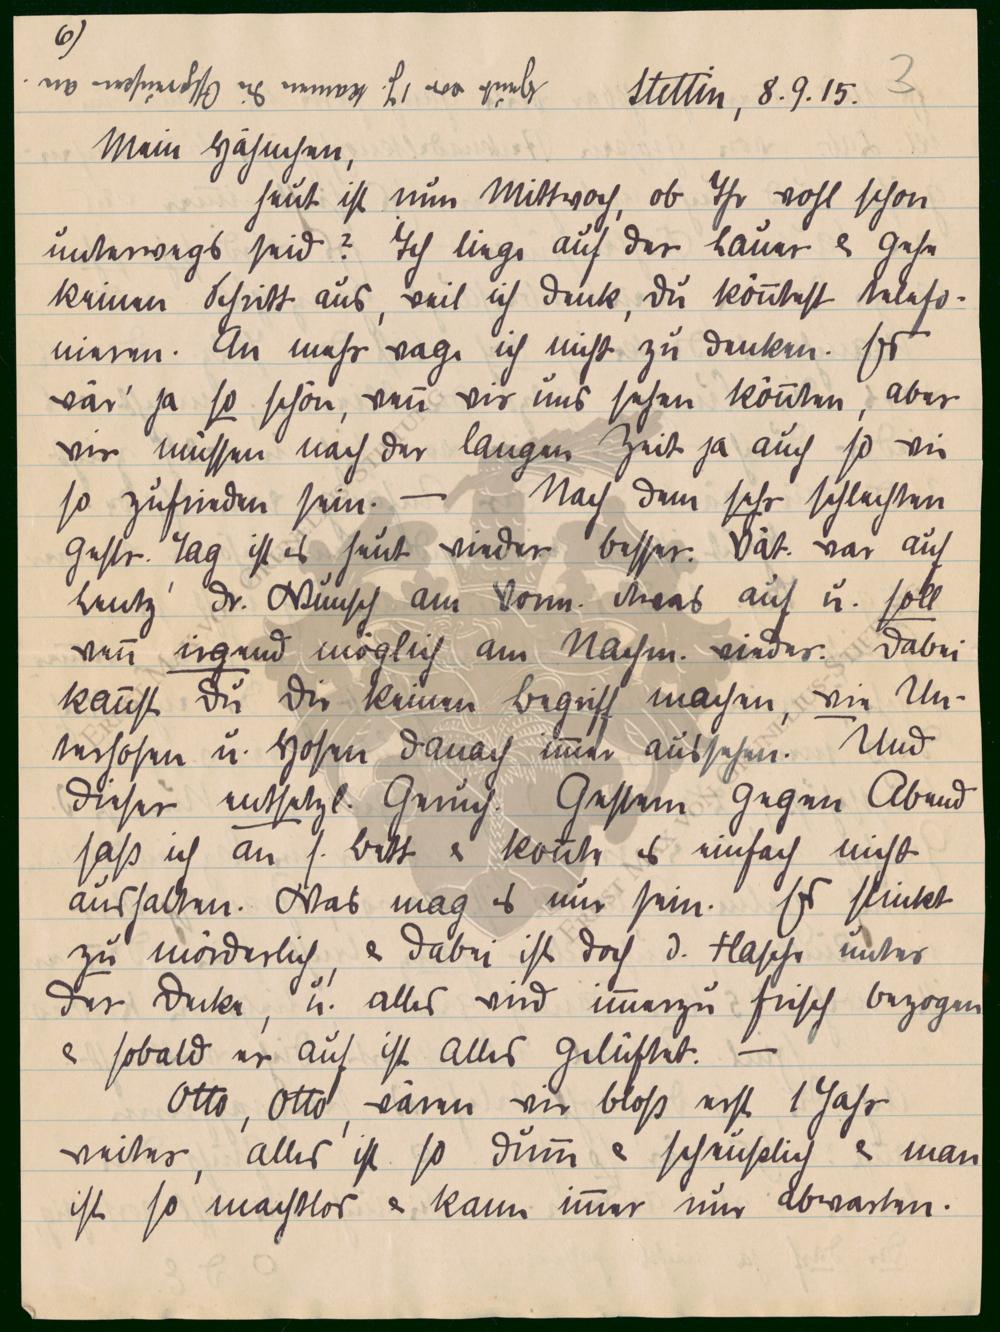 6)
Heut vor 1 J. kamen die Ostpreußen an.
Stettin, 8.9.15. 3
Mein Hähnchen,
heut ist nun Mittwoch, ob Ihr wohl schon
unterwegs seid? Ich liege auf der Lauer & gehe
keinen Schritt aus, weil ich denk, du kön̄test telefo-
nieren. An mehr wage ich nicht zu denken. Es
wär' ja so schön, wen̄ wir uns sehen kön̄ten, aber
wir müssen nach der langen Zeit ja auch so wie
so zufrieden sein. — Nach dem sehr schlechten
gestr. Tag ist es heut wieder besser. Vat. war auf
Lentz' Dr. Wunsch am Vorm. etwas auf u. soll
wen̄ irgend möglich am Nachm. wieder. Dabei
kan̄st Du Dir keinen Begriff machen, wie Un-
terhosen u. Hosen danach im̄er aussehen. Und
dieser entsetzl. Geruch. Gestern gegen Abend
saß ich an s. Bett & kon̄te es einfach nicht
aushalten. Was mag es nur sein. Es stinkt
zu mörderlich, & dabei ist doch d. Flasche unter
der Decke, u. alles wird im̄erzu frisch bezogen
& sobald er auf ist alles gelüftet. —
Otto, Otto, wären wir bloß erst 1 Jahr
weiter, alles ist so dum̄ & scheußlich & man
ist so machtlos & kann im̄er nur abwarten.